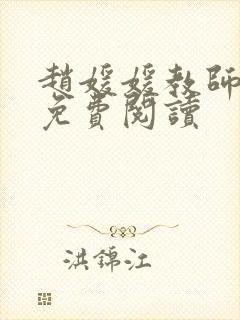 趙媛媛教師
免費閱讀
洪錦江